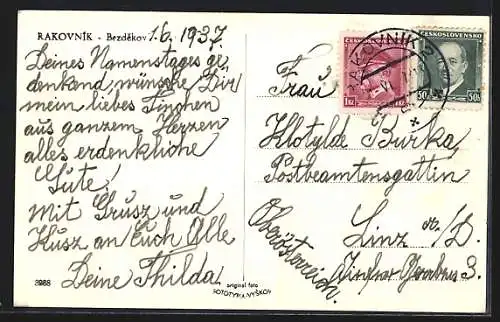 RAKOVNÍK - Bezděkov 1.6. 1937.
Deines Namenstages ge,
denkend, wünsche Dir
mein liebes Tinchen
aus ganzem Herzen
alles erdenkliche
Gute!
Mit Grusz und
Kusz an Euch Alle
Deine Thilda
3988
original foto
FOTOTYPIA-VYŠKOV
ČESKOSLOVENSKO
1Kč
ČESKOSLOVENSKO
50h
RAKOVNÍK 2
Frau
Klotylde Burka
Postbeamtensgattin
Linz a/D.
Oberösterreich.